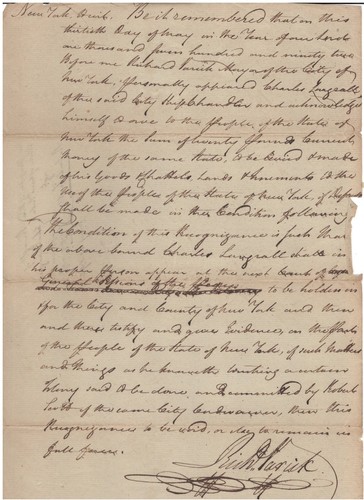 New York, Ss. Be it remembered that on this
thirtieth Day of May in the Year of our Lord
one thousand seven hundred and ninety two
Before me Richard Varick Mayor of the City of
New York. Personally appeared Charles Langrall
of the said City Ship Chandler and acknowledged
himself to owe to the People of the State of
New York the Sum of twenty Pounds Current
money of the same State, to be levied & made
of his Goods & Chattels Lands & Tenements to the
Use of the People of the State of New York, if Default
shall be made in the Condition following
The Condition of this Recognizance is such that
if the above bound Charles Langrall shall in
his proper Person appear at the next Court of
to be holden in
& for the City and County of New York and then
and there testify and give Evidence, on the Part
of the People of the State of New York, of such Matters
and things as he knoweth touching a certain
Felony said to be done and committed by Robert
of the same City then this
Recognizance to be void, or else to remain in
full force.
Richd Varick